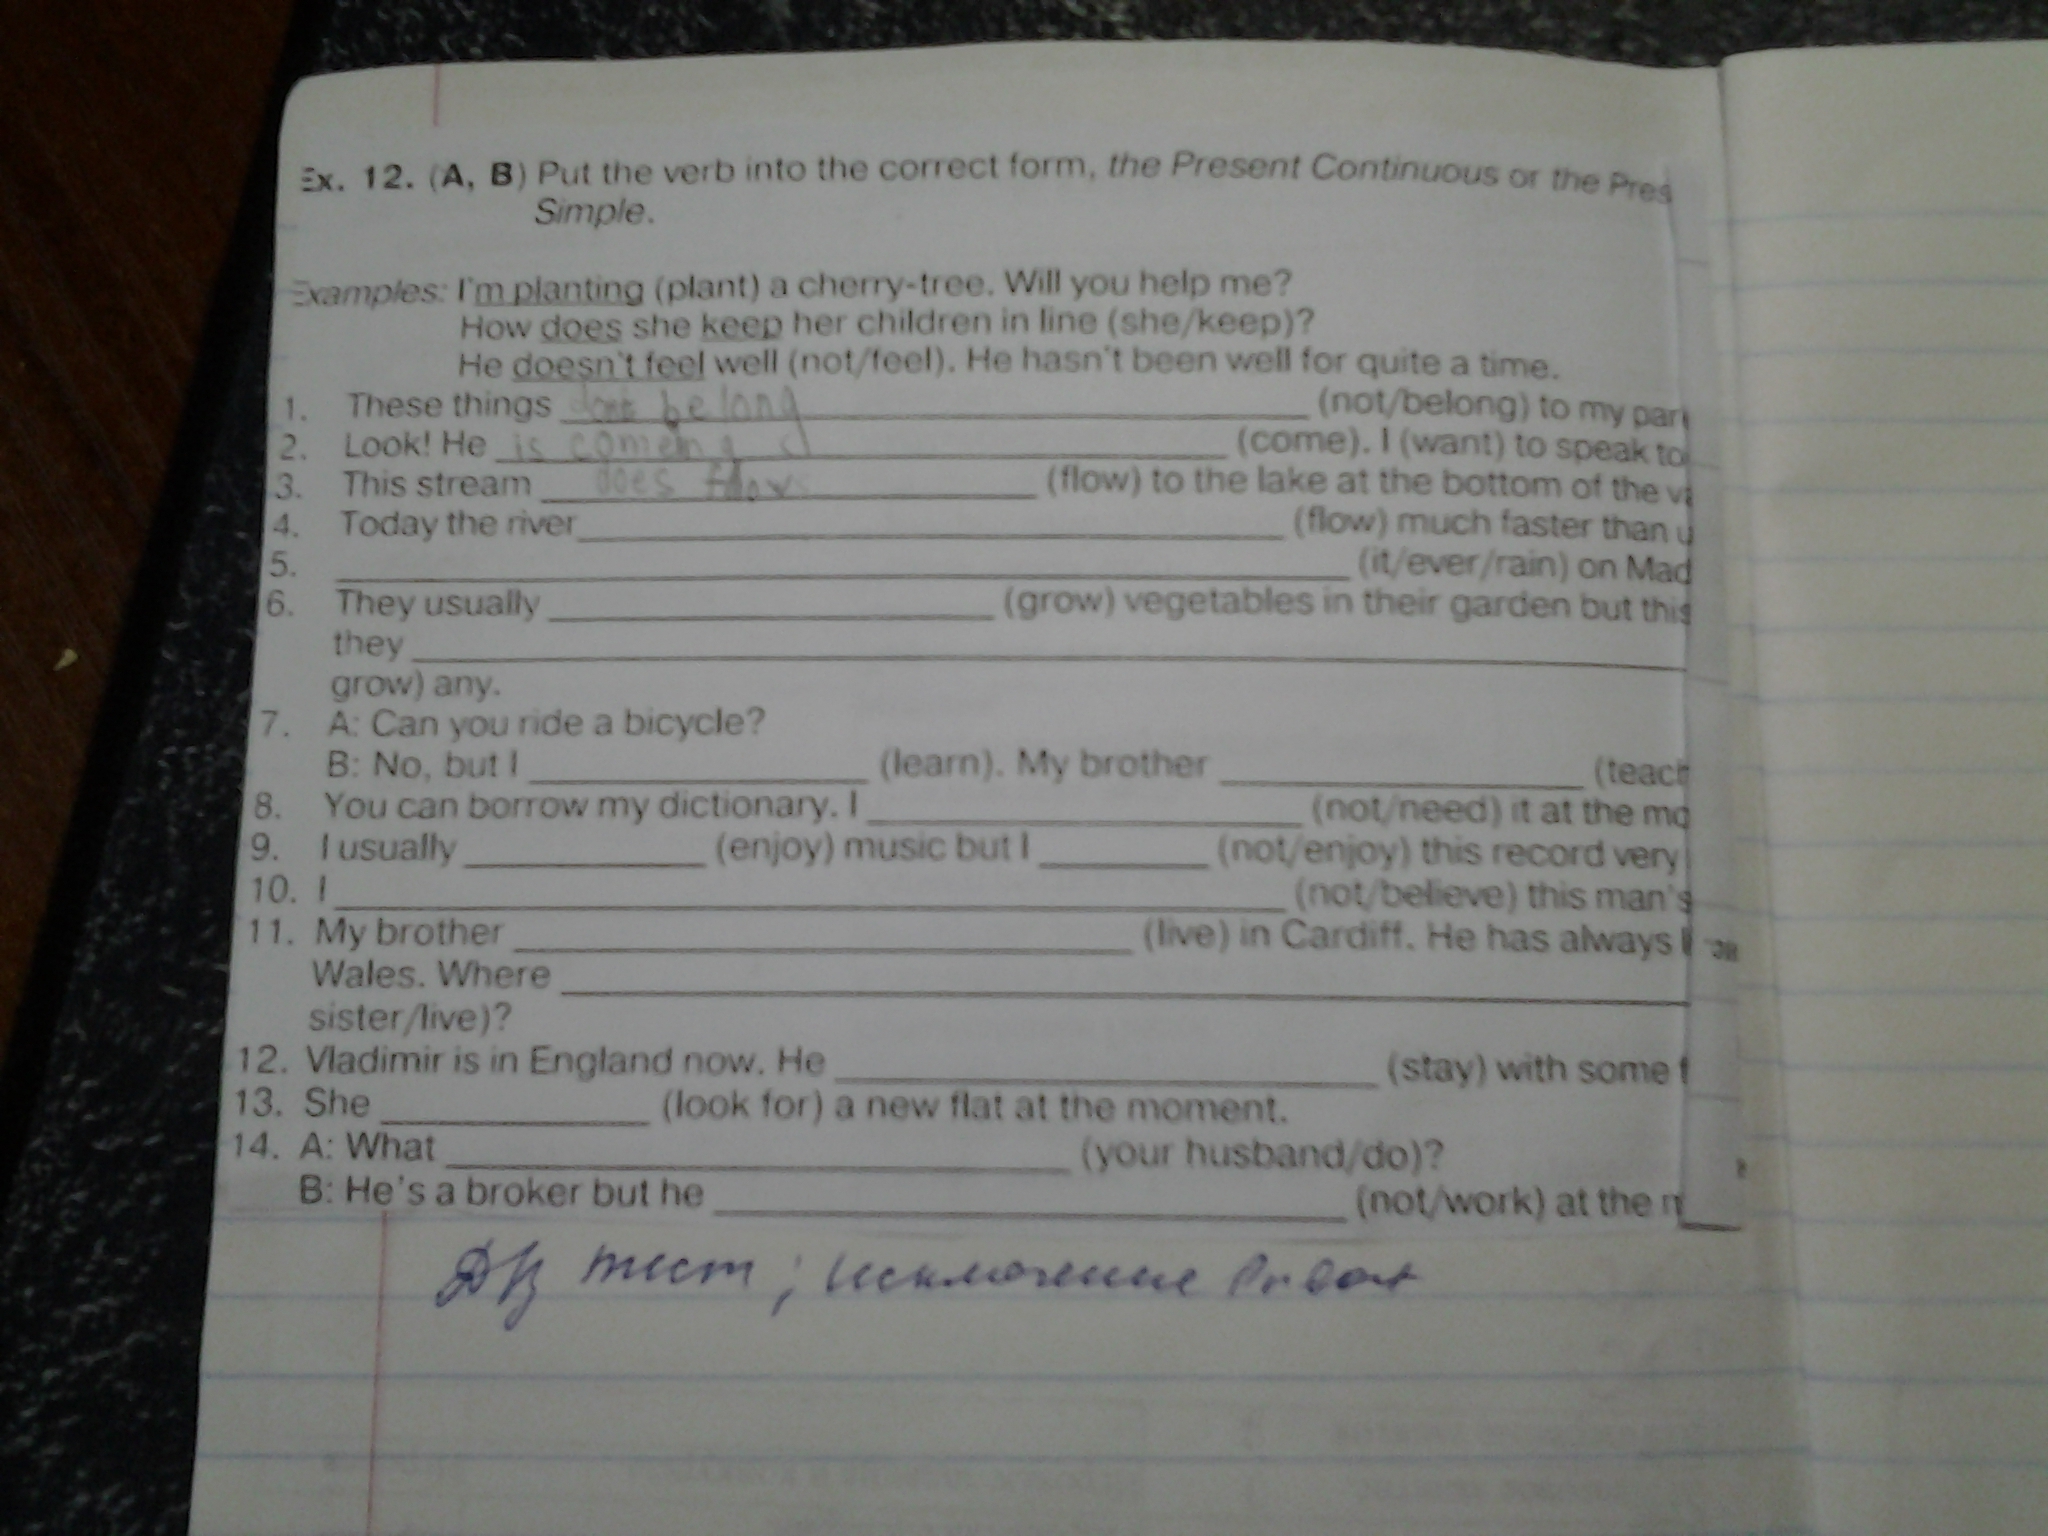 Ex. 12. (A, B) Put the verb into the correct form, the Present Continuous or the Pres
Simple.
Examples: I'm planting (plant) a cherry-tree. Will you help me?
How does she keep her children in line (she/keep)?
He doesn't feel well (not/feel). He hasn't been well for quite a time.
1. These things dont belong (not/belong) to my par
2. Look! He is comeing (come). I (want) to speak to
3. This stream does flows (flow) to the lake at the bottom of the va
4. Today the river ____ (flow) much faster than u
5. ____ (it/ever/rain) on Mad
6. They usually ____ (grow) vegetables in their garden but this
they ____
grow) any.
7. A: Can you ride a bicycle?
B: No, but I ____ (learn). My brother ____ (teach
8. You can borrow my dictionary. I ____ (not/need) it at the mo
9. I usually ____ (enjoy) music but I ____ (not/enjoy) this record very
10. I ____ (not/believe) this man's
11. My brother ____ (live) in Cardiff. He has always l
Wales. Where ____
sister/live)?
12. Vladimir is in England now. He ____ (stay) with some f
13. She ____ (look for) a new flat at the moment.
14. A: What ____ (your husband/do)?
B: He's a broker but he ____ (not/work) at the m
Д/з тест; исключение